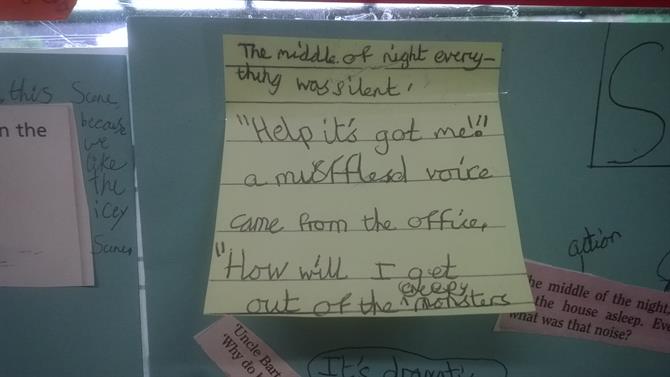 this Scene
because
we
like
the
icey
Scene.
n the
The middle of night every-
thing was silent.
"Help it's got me!!!"
a mufflead voice
came from the office.
"How will I get
out of the creepy monsters
S
action
he middle of the night,
the house asleep. Eve
what was that noise?
'Uncle Bart
'Why do
It's dramatic